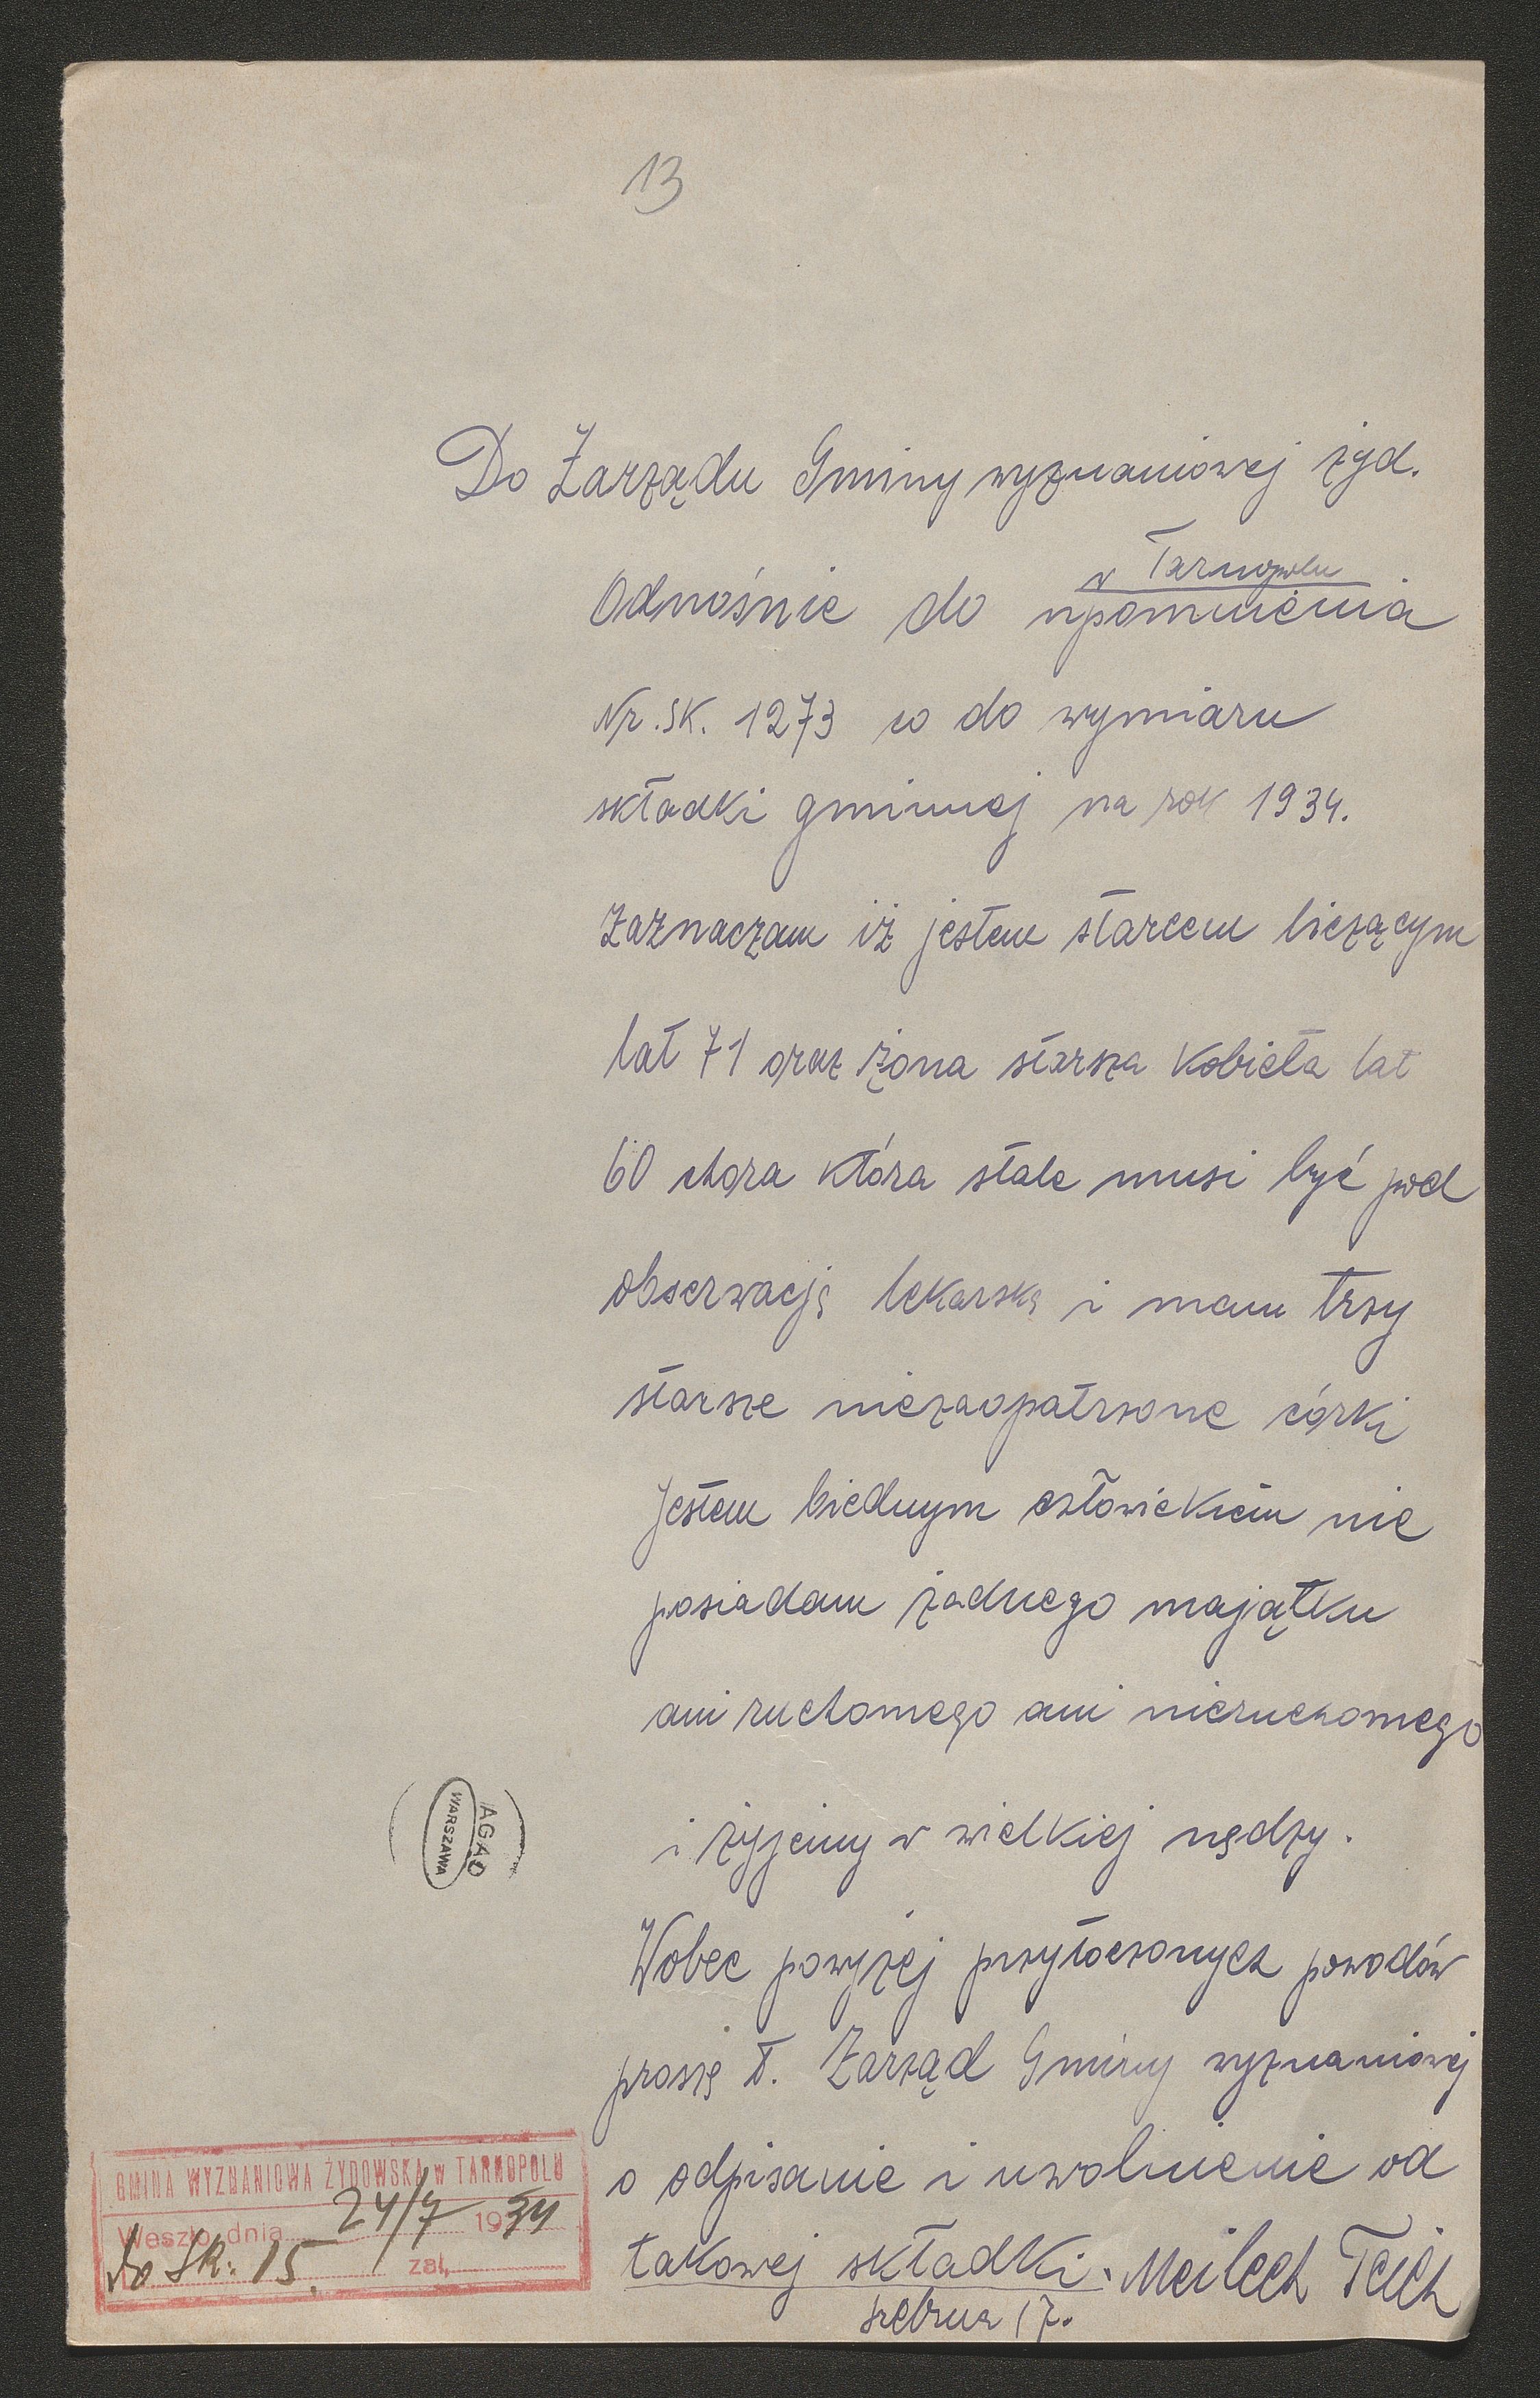 13
Do Zarządu Gminy wyznaniowej żyd.
w Tarnopolu
Odnośnie do upomnienia
Nr. SK. 1273 co do wymiaru
składki gminnej na rok 1934.
Zaznaczam iż jestem starcem liczącym
lat 71 oraz żona starsza kobieta lat
60 chora która stale musi być pod
obserwację lekarską i mam trzy
starsze niezaopatrzone córki
Jestem biednym człowiekiem nie
posiadam żadnego majątku
ani ruchomego ani nieruchomego
i żyjemy w wielkiej nędzy.
Wobec powyżej przytoczonych powodów
proszę T. Zarząd Gminy wyznaniowej
o odpisanie i uwolnienie od
takowej składki. Meilech Teich
srebrna 17.
AGAD
WARSZAWA
GMINA WYZNANIOWA ŻYDOWSKA w TARNOPOLU
Weszło dnia 24/7 1934
do SK: 15. zał.